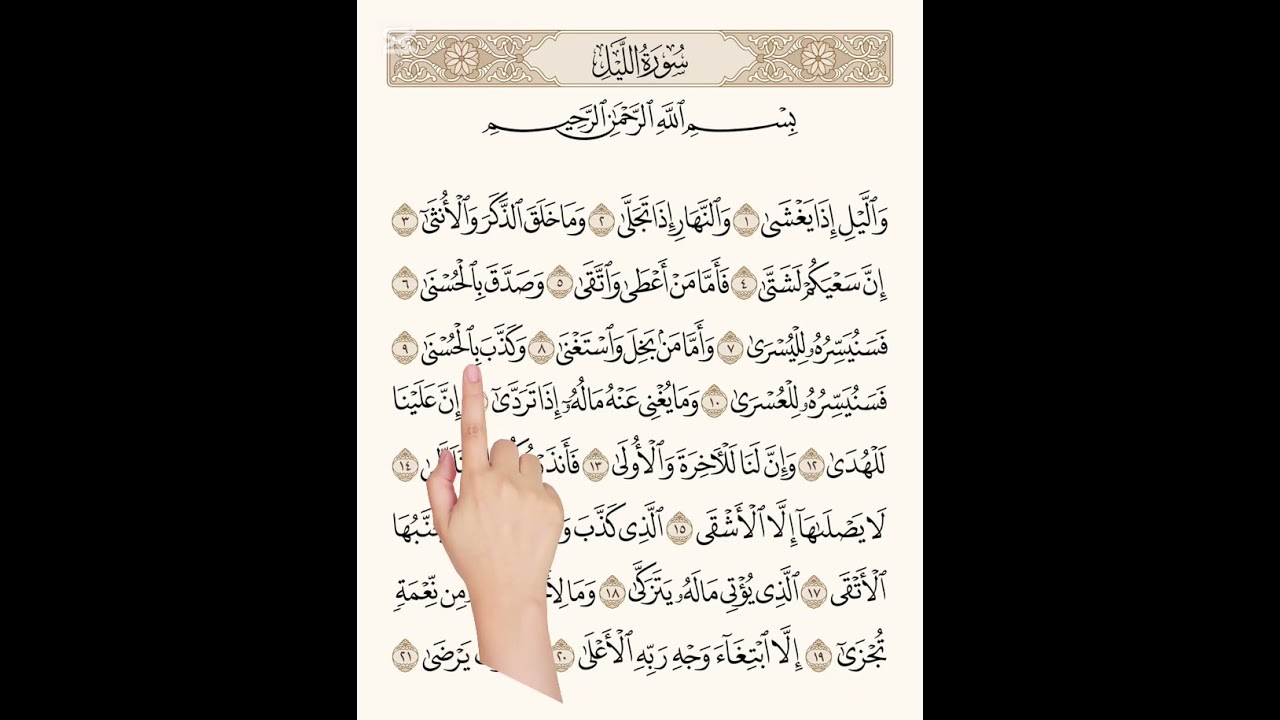 سُورَةُ اللَّيْلِ
بِسْمِ ٱللَّهِ ٱلرَّحْمَٰنِ ٱلرَّحِيمِ
وَٱلَّيْلِ إِذَا يَغْشَىٰ ١ وَٱلنَّهَارِ إِذَا تَجَلَّىٰ ٢ وَمَا خَلَقَ ٱلذَّكَرَ وَٱلْأُنثَىٰٓ ٣
إِنَّ سَعْيَكُمْ لَشَتَّىٰ ٤ فَأَمَّا مَنْ أَعْطَىٰ وَٱتَّقَىٰ ٥ وَصَدَّقَ بِٱلْحُسْنَىٰ ٦
فَسَنُيَسِّرُهُۥ لِلْيُسْرَىٰ ٧ وَأَمَّا مَنۢ بَخِلَ وَٱسْتَغْنَىٰ ٨ وَكَذَّبَ بِٱلْحُسْنَىٰ ٩
فَسَنُيَسِّرُهُۥ لِلْعُسْرَىٰ ١٠ وَمَا يُغْنِى عَنْهُ مَالُهُۥٓ إِذَا تَرَدَّىٰٓ إِنَّ عَلَيْنَا
لَلْهُدَىٰ ١٢ وَإِنَّ لَنَا لَلْـَٔاخِرَةَ وَٱلْأُولَىٰ ١٣ ١٤
لَا يَصْلَىٰهَآ إِلَّا ٱلْأَشْقَى ١٥ ٱلَّذِى كَذَّبَ
ٱلْأَتْقَى ١٧ ٱلَّذِى يُؤْتِى مَالَهُۥ يَتَزَكَّىٰ ١٨ وَمَا مِن نِّعْمَةٍ
تُجْزَىٰٓ ١٩ إِلَّا ٱبْتِغَآءَ وَجْهِ رَبِّهِ ٱلْأَعْلَىٰ ٢٠ يَرْضَىٰ ٢١